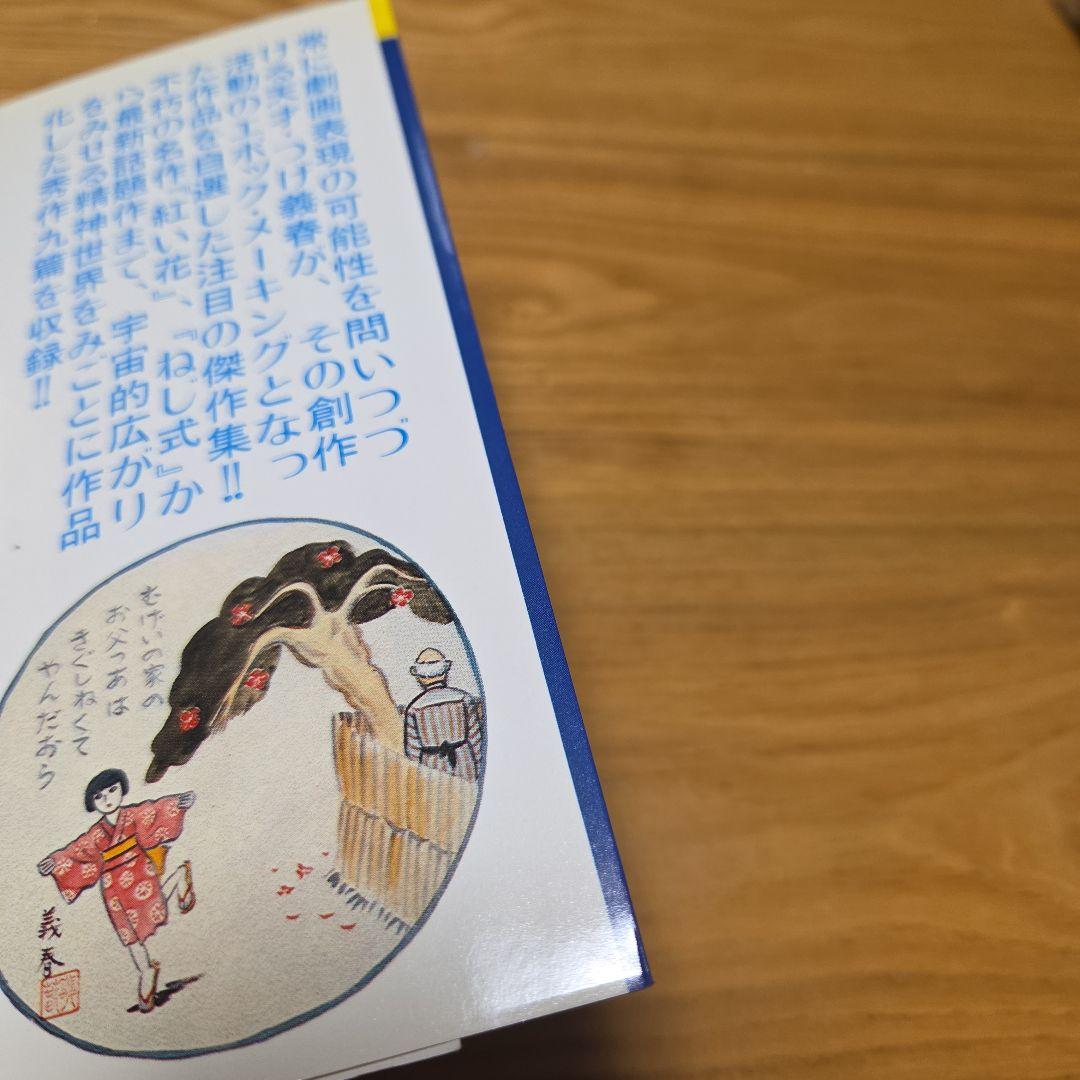 常に劇画表現の可能性を問いつづ
ける天才・つげ義春が、その創作
活動のエポック・メーキングとなっ
た作品を自選した注目の傑作集!!
不朽の名作『紅い花』、『ねじ式』か
ら最新話題作まで、宇宙的広がり
をみせる精神世界をみごとに作品
化した秀作九篇を収録!!
むけいの家の
お父つあは
きぐしねくて
やんだおら
義春